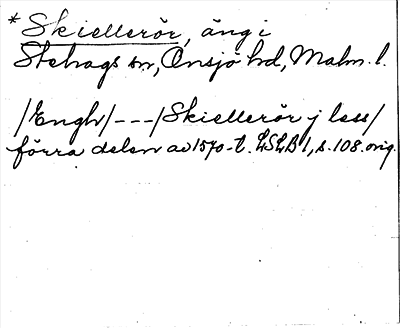 * Skiellerör, äng i
Stehags sn, Onsjö hd, Malm. l.
/Engh/---/Skiellerör j less/
förra delen av 1570-t. LSLB 1, s. 108. orig.